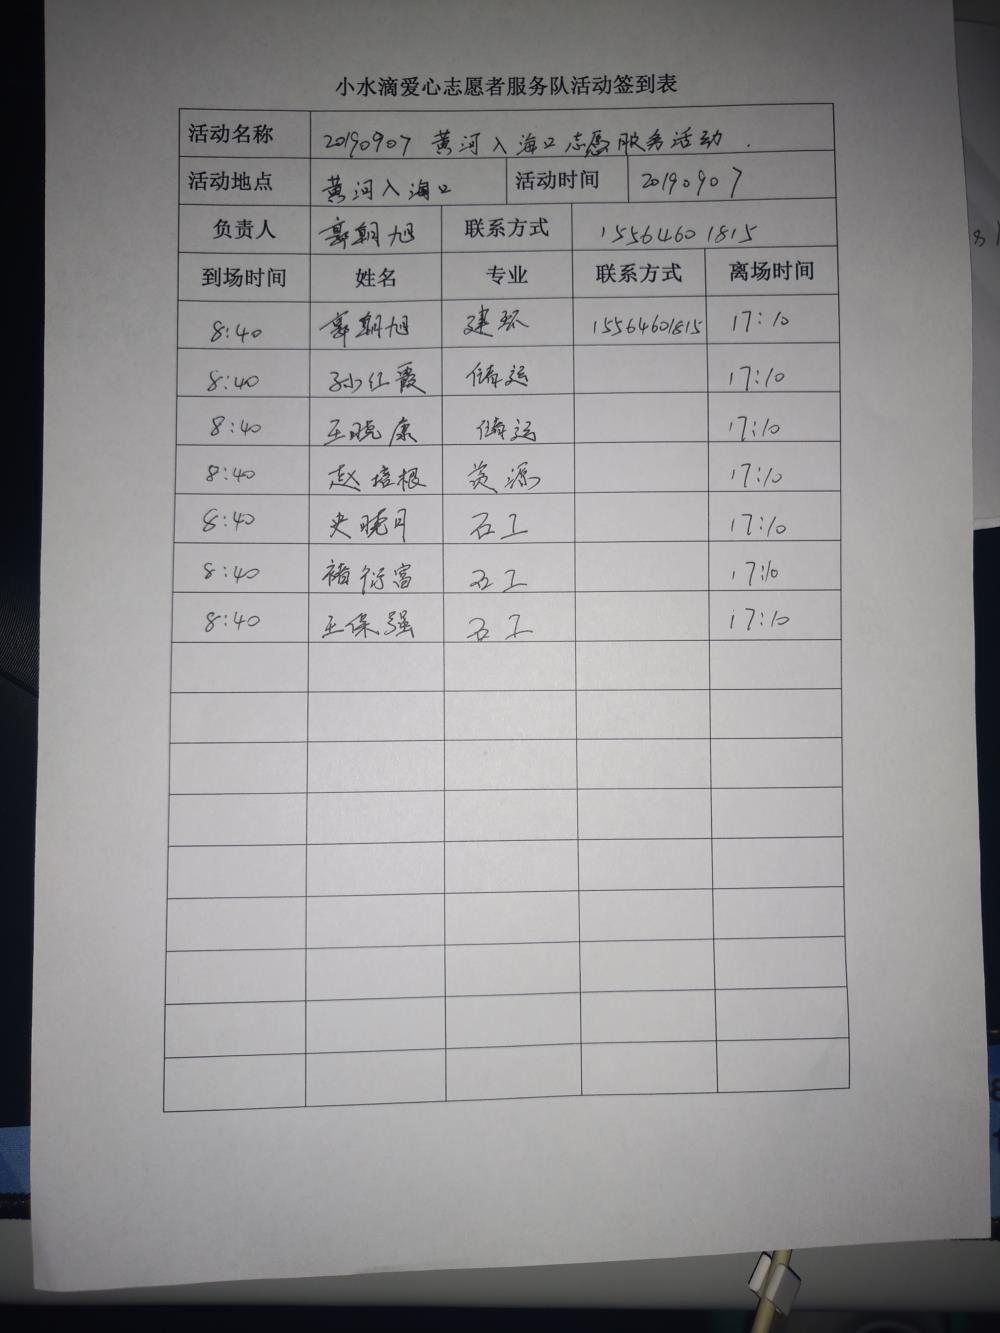 小水滴爱心志愿者服务队活动签到表
活动名称 20190907 黄河入海口志愿服务活动.
活动地点 黄河入海口 活动时间 20190907
负责人 郭朝旭 联系方式 15564601815
到场时间 姓名 专业 联系方式 离场时间
8:40 郭朝旭 建环 15564601815 17:10
8:40 孙红霞 储运 17:10
8:40 王晓康 储运 17:10
8:40 赵培根 资源 17:10
8:40 晓月 石工 17:10
8:40 褚衍富 石工 17:10
8:40 王保强 石工 17:10